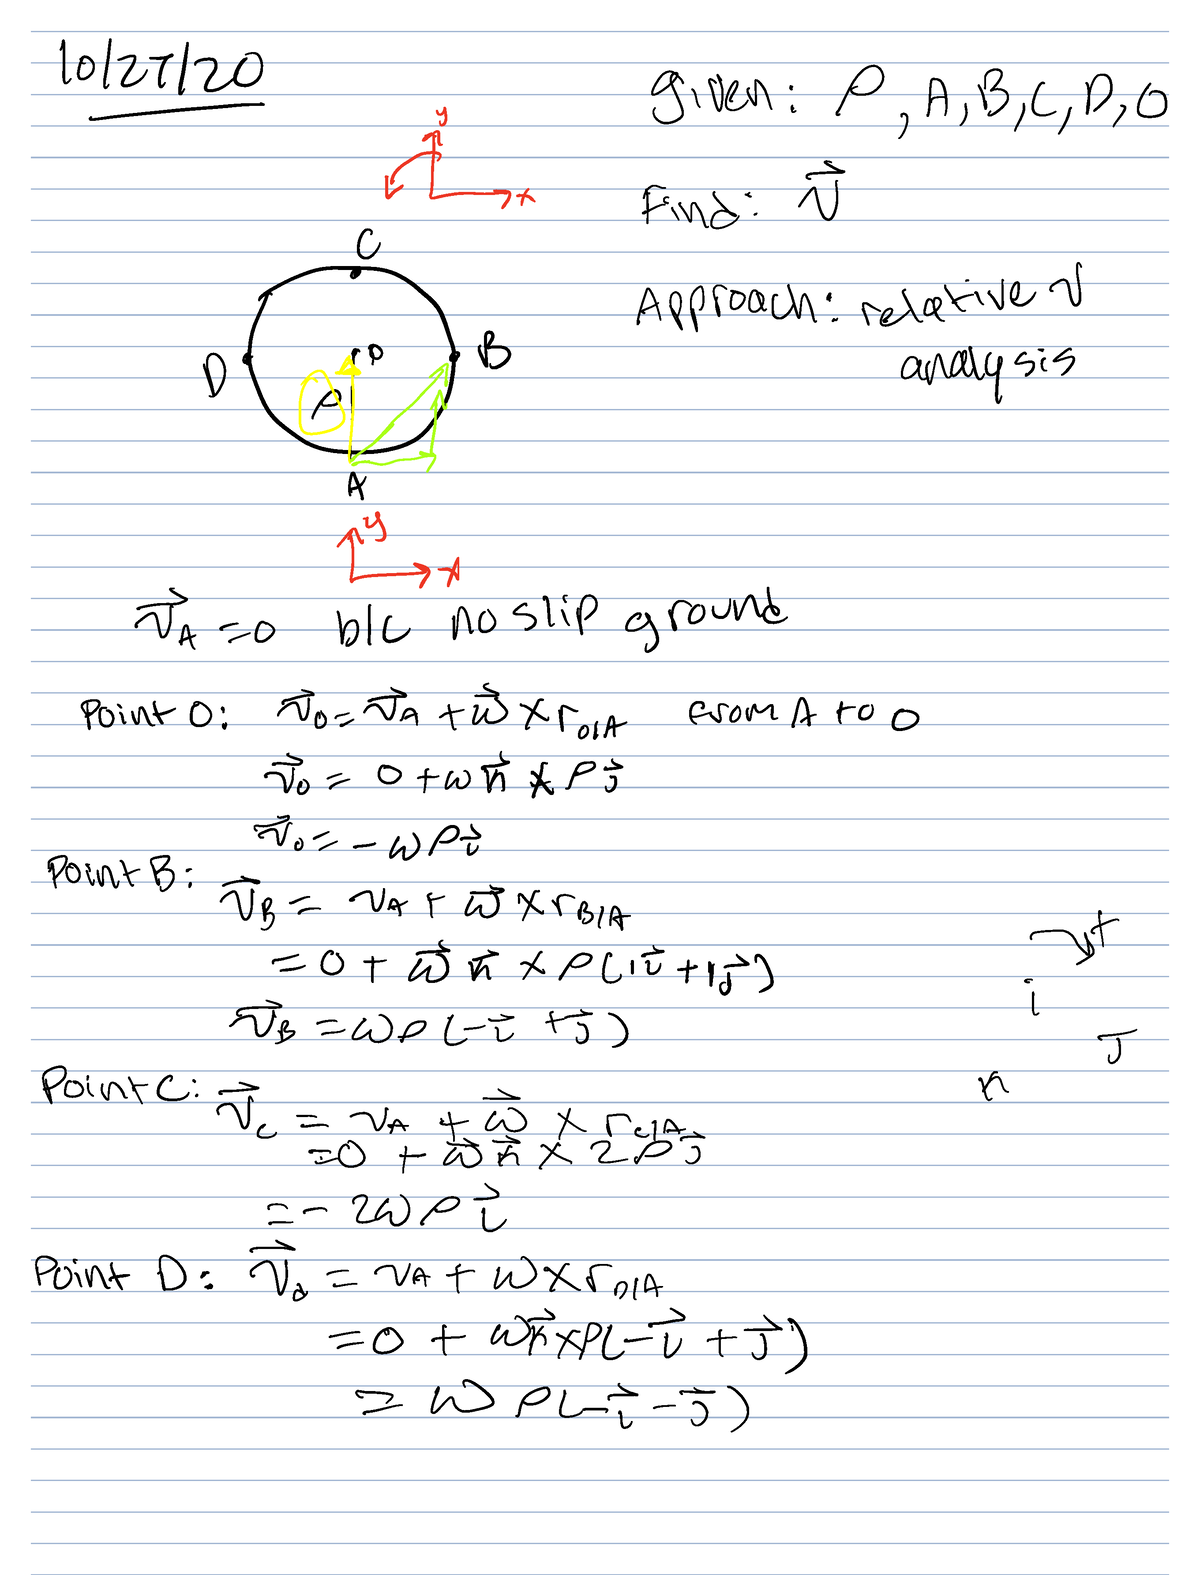 10/27/20
given: ρ, A, B, C, D, O
Find: v⃗
Approach: relative v
analysis
y
x
C
D
O
B
ρ
A
y
x
v⃗_A = 0 b/c no slip ground
Point O: v⃗_O = v⃗_A + ω⃗ × r_O/A from A to O
v⃗_O = 0 + ω k⃗ × ρ j⃗
v⃗_O = - ω ρ i⃗
Point B:
v⃗_B = v_A + ω⃗ × r_B/A
= 0 + ω⃗ k⃗ × ρ (1i⃗ + 1j⃗)
v⃗_B = ω ρ (-i⃗ + j⃗)
+
i
J
k
Point C:
v⃗_C = v_A + ω⃗ × r_C/A
= 0 + ω⃗ k⃗ × 2 ρ j⃗
= - 2 ω ρ i⃗
Point D: v⃗_d = v_A + ω × r_D/A
= 0 + ω k⃗ × ρ (-i⃗ + j⃗)
= ω ρ (-i⃗ - j⃗)